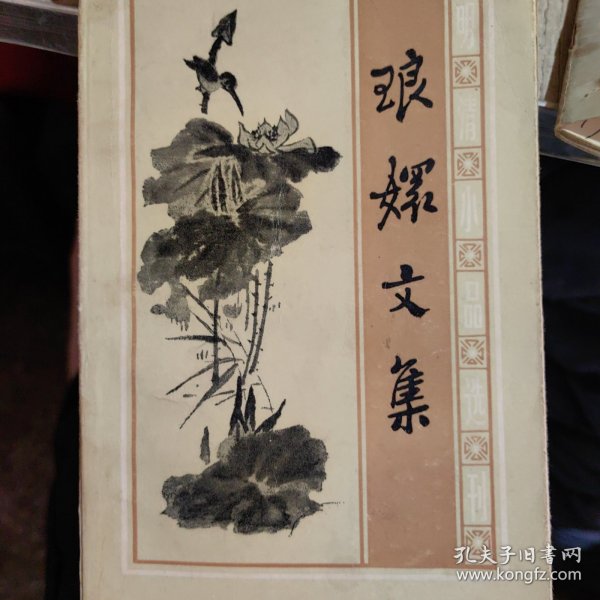 明清小品选刊
琅嬛文集
孔夫子旧书网
www.kongfz.com